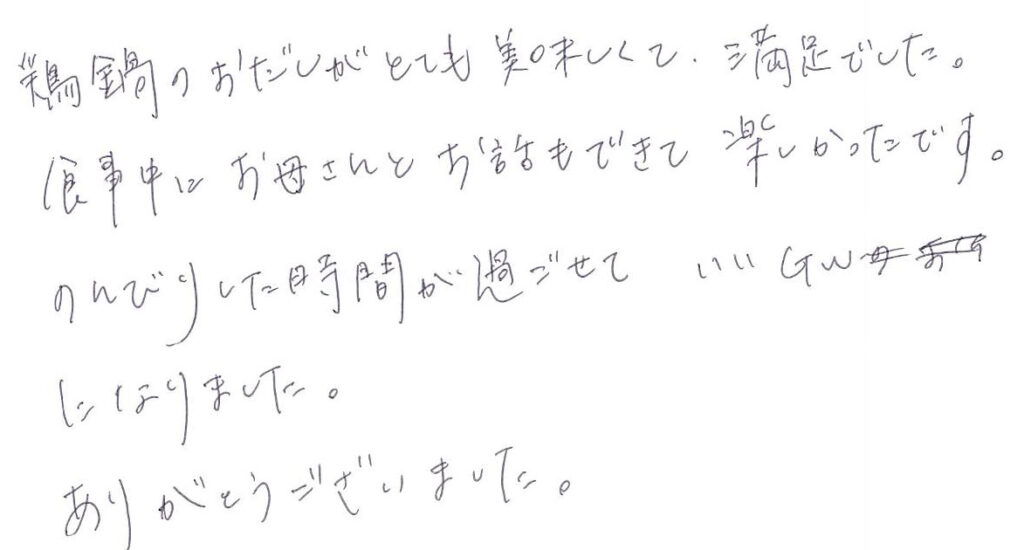 鶏鍋のおだしがとても美味しくて、満足でした。
食事中にお母さんとお話もできて楽しかったです。
のんびりした時間が過ごせて いいGW
になりました。
ありがとうございました。